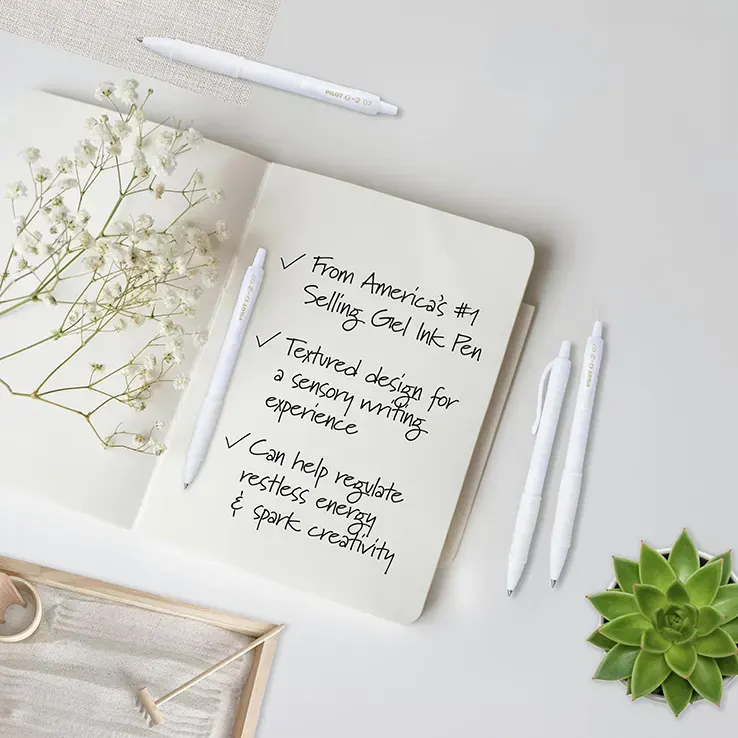 PILOT G-2 07
✓ From America's #1
Selling Gel Ink Pen
✓ Textured design for
a sensory writing
experience
✓ Can help regulate
restless energy
& spark creativity
PILOT G-2 07
PILOT G-2 07